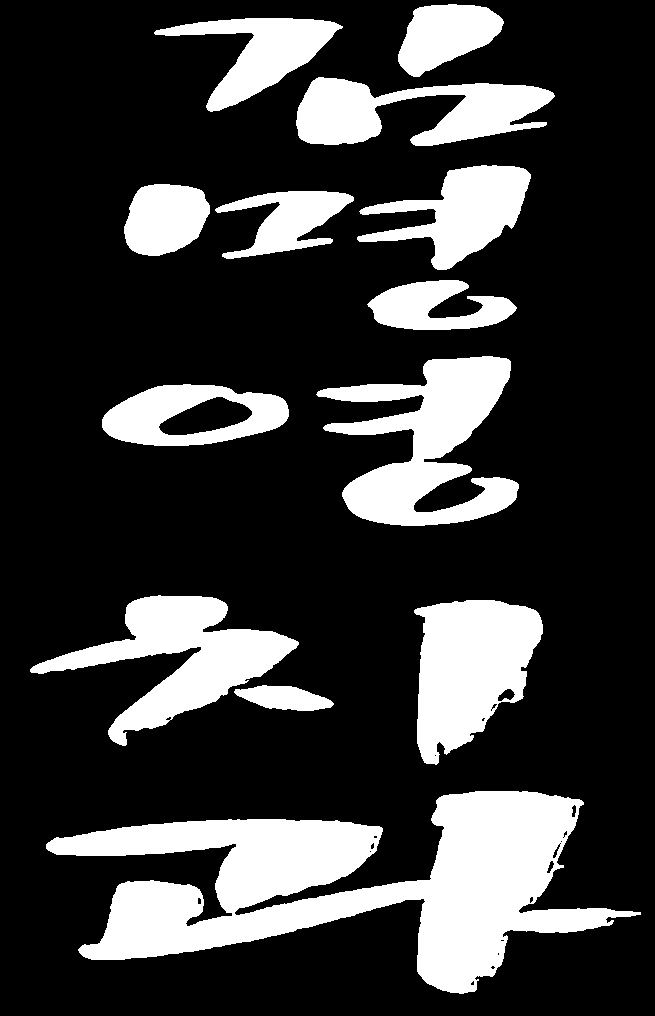 김
명
영
치
과